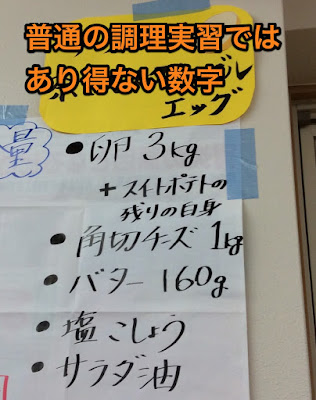 普通の調理実習では
あり得ない数字
エッグ
量
●卵 3kg
+スイートポテトの
残りの白身
●角切チーズ 1kg
●バター 160g
●塩こしょう
●サラダ油